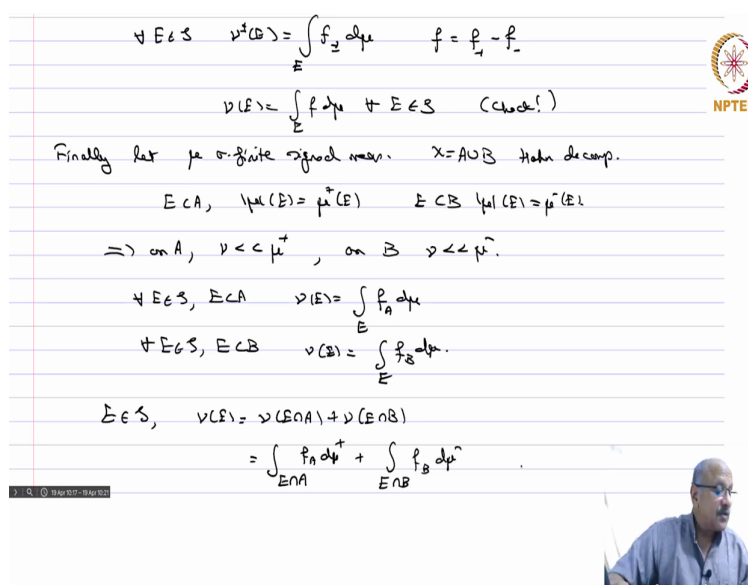 ∀ E ∈ S   ν^±(E) = ∫_E f_± dμ   f = f_+ - f_-
NPTEL
ν(E) = ∫_E f dμ ∀ E ∈ S   (Check!)
Finally let μ σ-finite signed meas. X = A∪B Hahn decomp.
E ⊂ A, |μ|(E) = μ^+(E)   E ⊂ B |μ|(E) = μ^-(E).
⇒ on A, ν << μ^+, on B ν << μ^-.
∀ E ∈ S, E ⊂ A   ν(E) = ∫_E f_A dμ
∀ E ∈ S, E ⊂ B   ν(E) = ∫_E f_B dμ.
E ∈ S, ν(E) = ν(E∩A) + ν(E∩B)
= ∫_{E∩A} f_A dμ^+ + ∫_{E∩B} f_B dμ^-
19 Apr 10:17 - 19 Apr 10:21